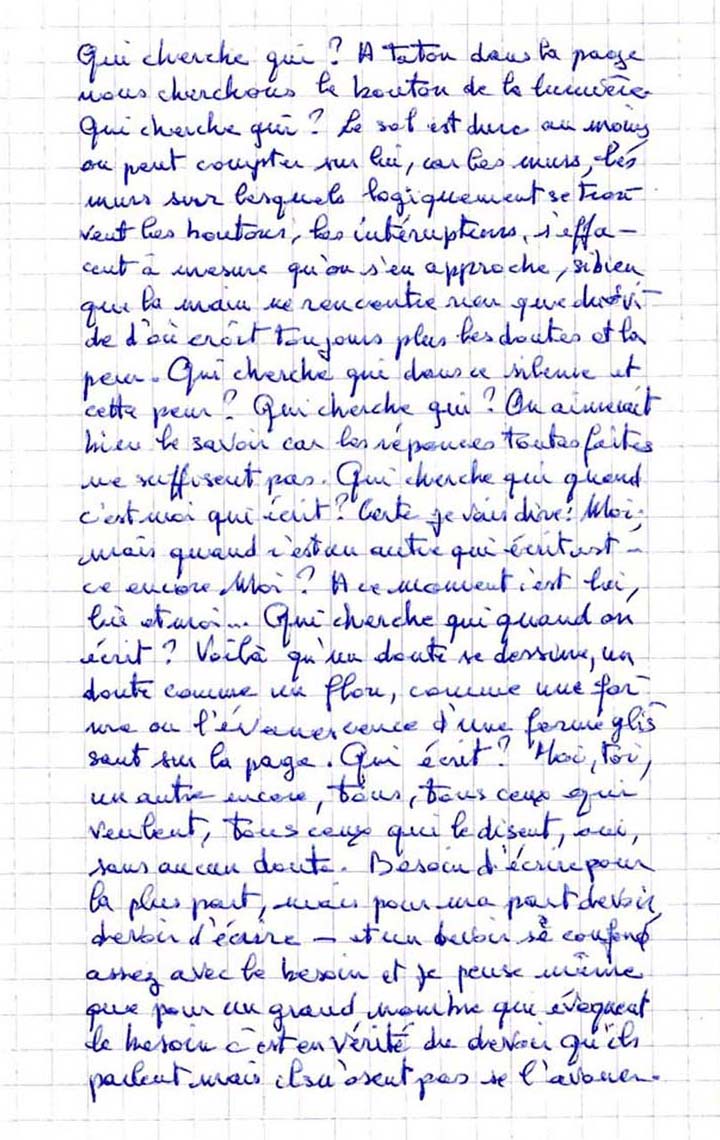 Qui cherche qui ? A taton dans la page
nous cherchons le bouton de la lumière.
Qui cherche qui ? Le sol est dur au moins
on peut compter sur lui, car les murs, les
murs sur lesquels logiquement se trou
vent les boutons, les intérupteurs, s'effa-
cent à mesure qu'on s'en approche, si bien
que la main ne rencontre rien que du vi-
de d'où croît toujours plus les doutes et la
peur. Qui cherche qui dans ce silence et
cette peur ? Qui cherche qui ? On aimerait
bien le savoir car les réponces toutes faites
ne suffisent pas. Qui cherche qui quand
c'est moi qui écrit ? Certe je vais dire : Moi,
mais quand c'est un autre qui écrit est-
ce encore Moi ? A ce moment c'est lui,
lui et moi... Qui cherche qui quand on
écrit ? Voilà qu'un doute se dessine, un
doute comme un flou, comme une for
me ou l'évanescence d'une forme glis
sant sur la page. Qui écrit ? Moi, toi,
un autre encore, tous, tous ceux qui
veulent, tous ceux qui le disent, oui,
sans aucun doute. Besoin d'écrire pour
la plus part, mais pour ma part devoir,
devoir d'écrire — et un devoir se confond
assez avec le besoin et je pense même
que pour un grand nombre qui évoquent
le besoin c'est en vérité du devoir qu'ils
parlent mais ils n'osent pas se l'avouer.